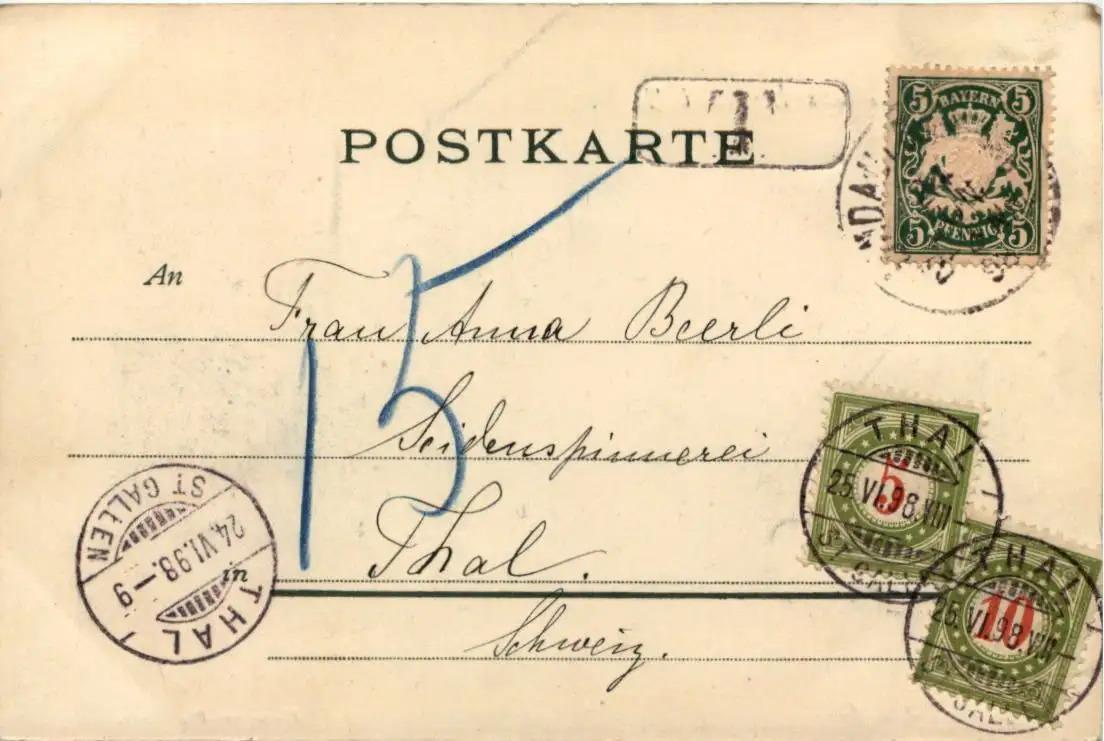 T
POSTKARTE
5 BAYERN 5
5 PFENNIG 5
15
An
Frau Anna Beerli
Seidenspinnerei
in Thal.
Schweiz.
THAL
25.VI.98.VIII
ST GALLEN
5
THAL
25.VI.98.VIII
10
ST GALLEN
24.VI.98.–9
THAL